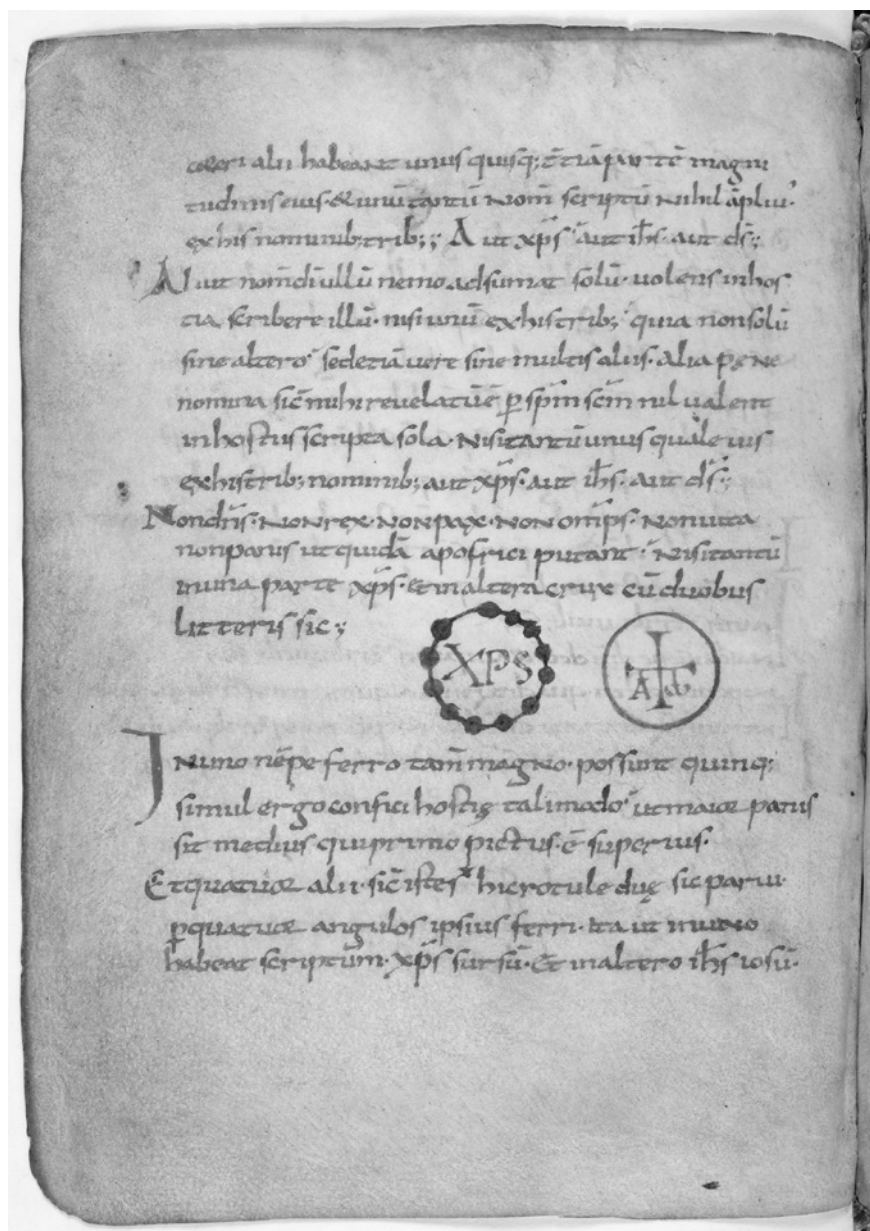 ceteri alii habeant unus quisq; t̄tiā partē magni
tudinis eius · & unū tantū nom̄ scriptū nihil āplius
ex his nominib; trib;; Aut xp̄s · aut ih̄s · aut d̄s ;;
ut nom̄ dī ullū nemo adsumat solū · uolens in hos
tia scribere illū · nisi unū ex his trib; quia non solū
sine altero · sed etiā uert sine multis aliis · alia pęne
nomina sic̄ mihi reuelatū ē p̄ sp̄m sc̄m nil ualent
in hostiis scripta sola · Nisi tantū unus quale uis
ex his trib; nominib; aut xp̄s · aut ih̄s · aut d̄s ;;
Non dn̄s · Non rex · Non pax · Non om̄ps · Non uita
non panis ut quidā apofrici putant · Nisi tantū
in una parte xp̄s · et in altera crux cū duobus
litteris sic ;
XPS
A ω
In uno nēpe ferro tam̄ magno · possunt quinq;
simul ergo confici hostię tali modo · ut maior panis
sit medius qui primo pictus · ē superius ·
Et quatuor alii · sic̄ istes hic rotule duę sic parui ·
p̄ quatuor angulos ipsius ferri · ita ut in uno
habeat scriptum · xp̄s sursū · Et in altero ih̄s iosū ·